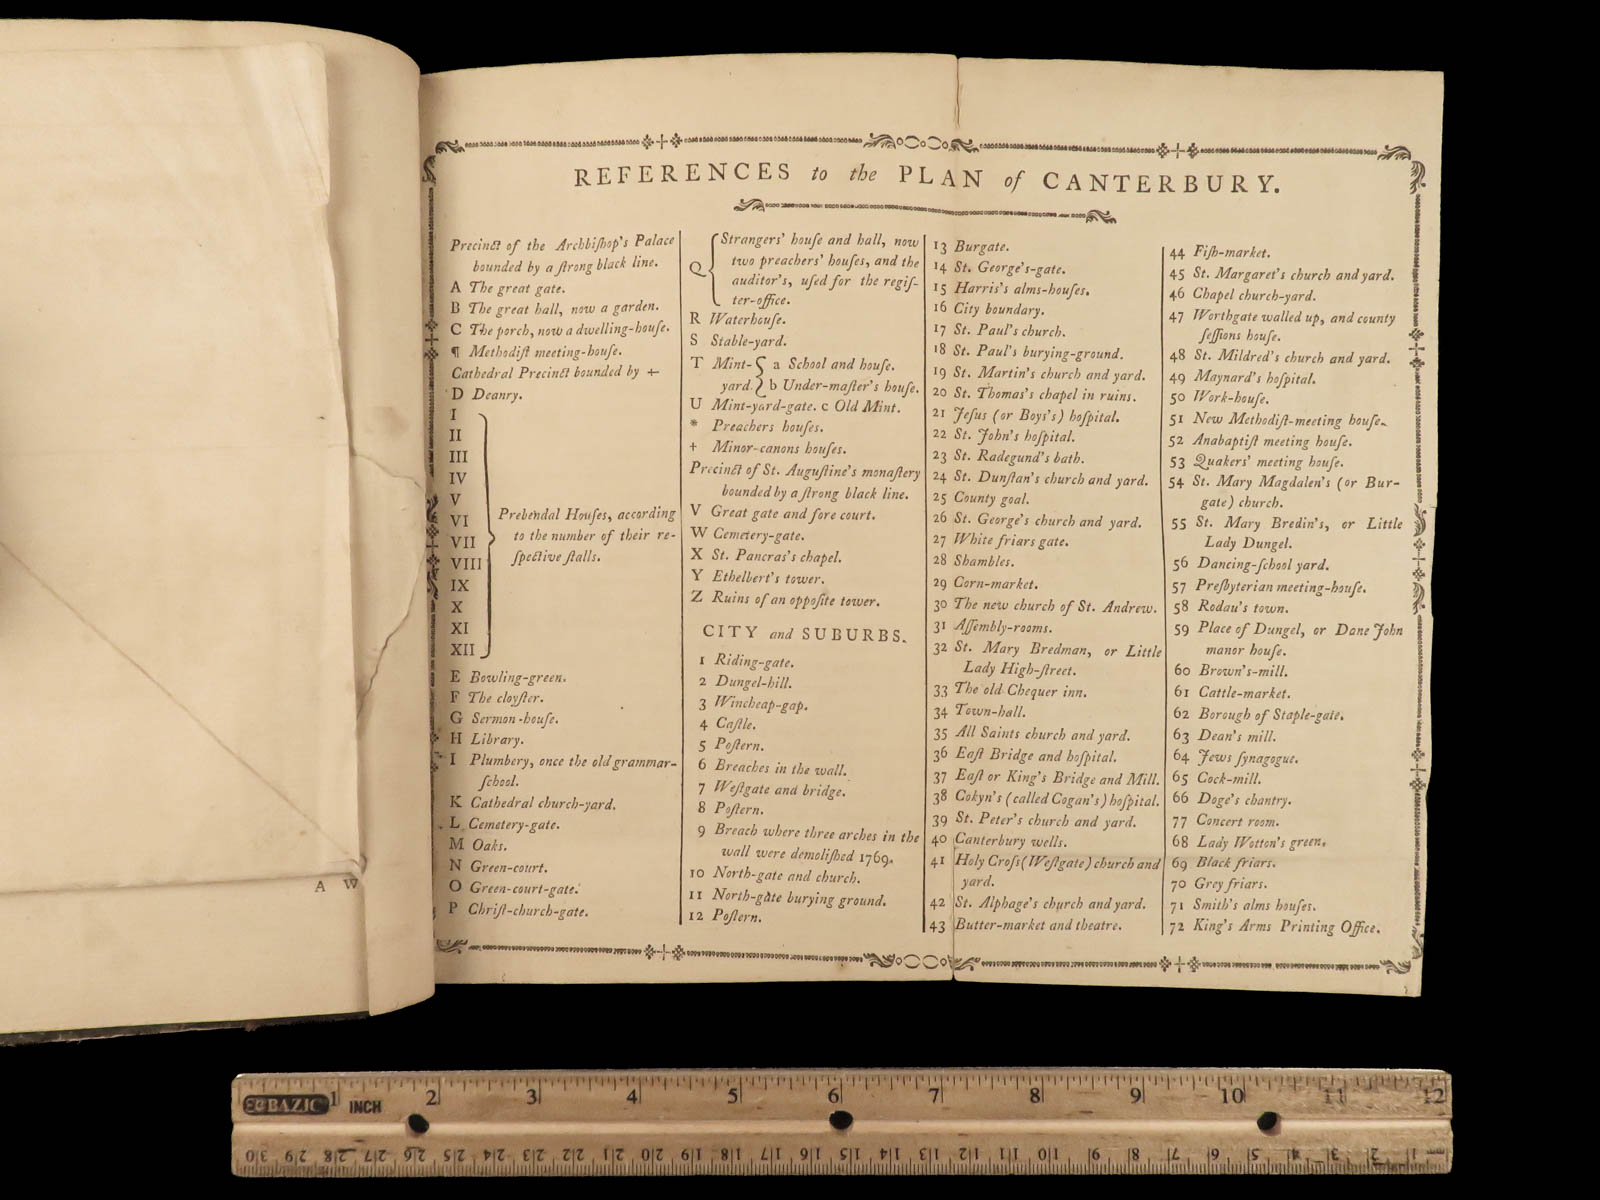 REFERENCES to the PLAN of CANTERBURY.
Precinct of the Archbiſhop's Palace
bounded by a ſtrong black line.
A The great gate.
B The great hall, now a garden.
C The porch, now a dwelling-houſe.
¶ Methodiſt meeting-houſe.
Cathedral Precinct bounded by +-
D Deanry.
I
II
III
IV
V
VI
VII
VIII
IX
X
XI
XII
Prebendal Houſes, according
to the number of their re-
ſpective ſtalls.
E Bowling-green.
F The cloyſter.
G Sermon-houſe.
H Library.
I Plumbery, once the old grammar-
ſchool.
K Cathedral church-yard.
L Cemetery-gate.
M Oaks.
N Green-court.
O Green-court-gate.
P Chriſt-church-gate.
Q Strangers' houſe and hall, now
two preachers' houſes, and the
auditor's, uſed for the regiſ-
ter-office.
R Waterhouſe.
S Stable-yard.
T Mint- a School and houſe.
yard. b Under-maſter's houſe.
U Mint-yard-gate. c Old Mint.
* Preachers houſes.
+ Minor-canons houſes.
Precinct of St. Auguſtine's monaſtery
bounded by a ſtrong black line.
V Great gate and fore court.
W Cemetery-gate.
X St. Pancras's chapel.
Y Ethelbert's tower.
Z Ruins of an oppoſite tower.
CITY and SUBURBS.
1 Riding-gate.
2 Dungel-hill.
3 Wincheap-gap.
4 Caſtle.
5 Poſtern.
6 Breaches in the wall.
7 Weſtgate and bridge.
8 Poſtern.
9 Breach where three arches in the
wall were demoliſhed 1769.
10 North-gate and church.
11 North-gate burying ground.
12 Poſtern.
13 Burgate.
14 St. George's-gate.
15 Harris's alms-houſes.
16 City boundary.
17 St. Paul's church.
18 St. Paul's burying-ground.
19 St. Martin's church and yard.
20 St. Thomas's chapel in ruins.
21 Jeſus (or Boys's) hoſpital.
22 St. John's hoſpital.
23 St. Radegund's bath.
24 St. Dunſtan's church and yard.
25 County goal.
26 St. George's church and yard.
27 White friars gate.
28 Shambles.
29 Corn-market.
30 The new church of St. Andrew.
31 Aſſembly-rooms.
32 St. Mary Bredman, or Little
Lady High-ſtreet.
33 The old Chequer inn.
34 Town-hall.
35 All Saints church and yard.
36 Eaſt Bridge and hoſpital.
37 Eaſt or King's Bridge and Mill.
38 Cokyn's (called Cogan's) hoſpital.
39 St. Peter's church and yard.
40 Canterbury wells.
41 Holy Croſs (Weſtgate) church and
yard.
42 St. Alphage's church and yard.
43 Butter-market and theatre.
44 Fiſh-market.
45 St. Margaret's church and yard.
46 Chapel church-yard.
47 Worthgate walled up, and county
ſeſſions houſe.
48 St. Mildred's church and yard.
49 Maynard's hoſpital.
50 Work-houſe.
51 New Methodiſt-meeting houſe.
52 Anabaptiſt meeting houſe.
53 Quakers' meeting houſe.
54 St. Mary Magdalen's (or Bur-
gate) church.
55 St. Mary Bredin's, or Little
Lady Dungel.
56 Dancing-ſchool yard.
57 Preſbyterian meeting-houſe.
58 Rodau's town.
59 Place of Dungel, or Dane John
manor houſe.
60 Brown's-mill.
61 Cattle-market.
62 Borough of Staple-gate.
63 Dean's mill.
64 Jews ſynagogue.
65 Cock-mill.
66 Doge's chantry.
77 Concert room.
68 Lady Wotton's green.
69 Black friars.
70 Grey friars.
71 Smith's alms houſes.
72 King's Arms Printing Office.
A W
BAZIC 1 INCH 2 3 4 5 6 7 8 9 10 11 12
30 29 28 27 26 25 24 23 22 21 20 19 18 17 16 15 14 13 12 11 10 9 8 7 6 5 4 3 2 1